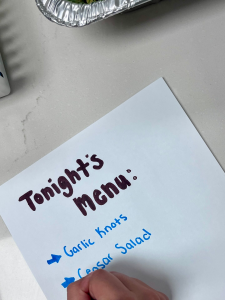 Tonight's
Menu:
→ Garlic Knots
→ Ceasar Salad